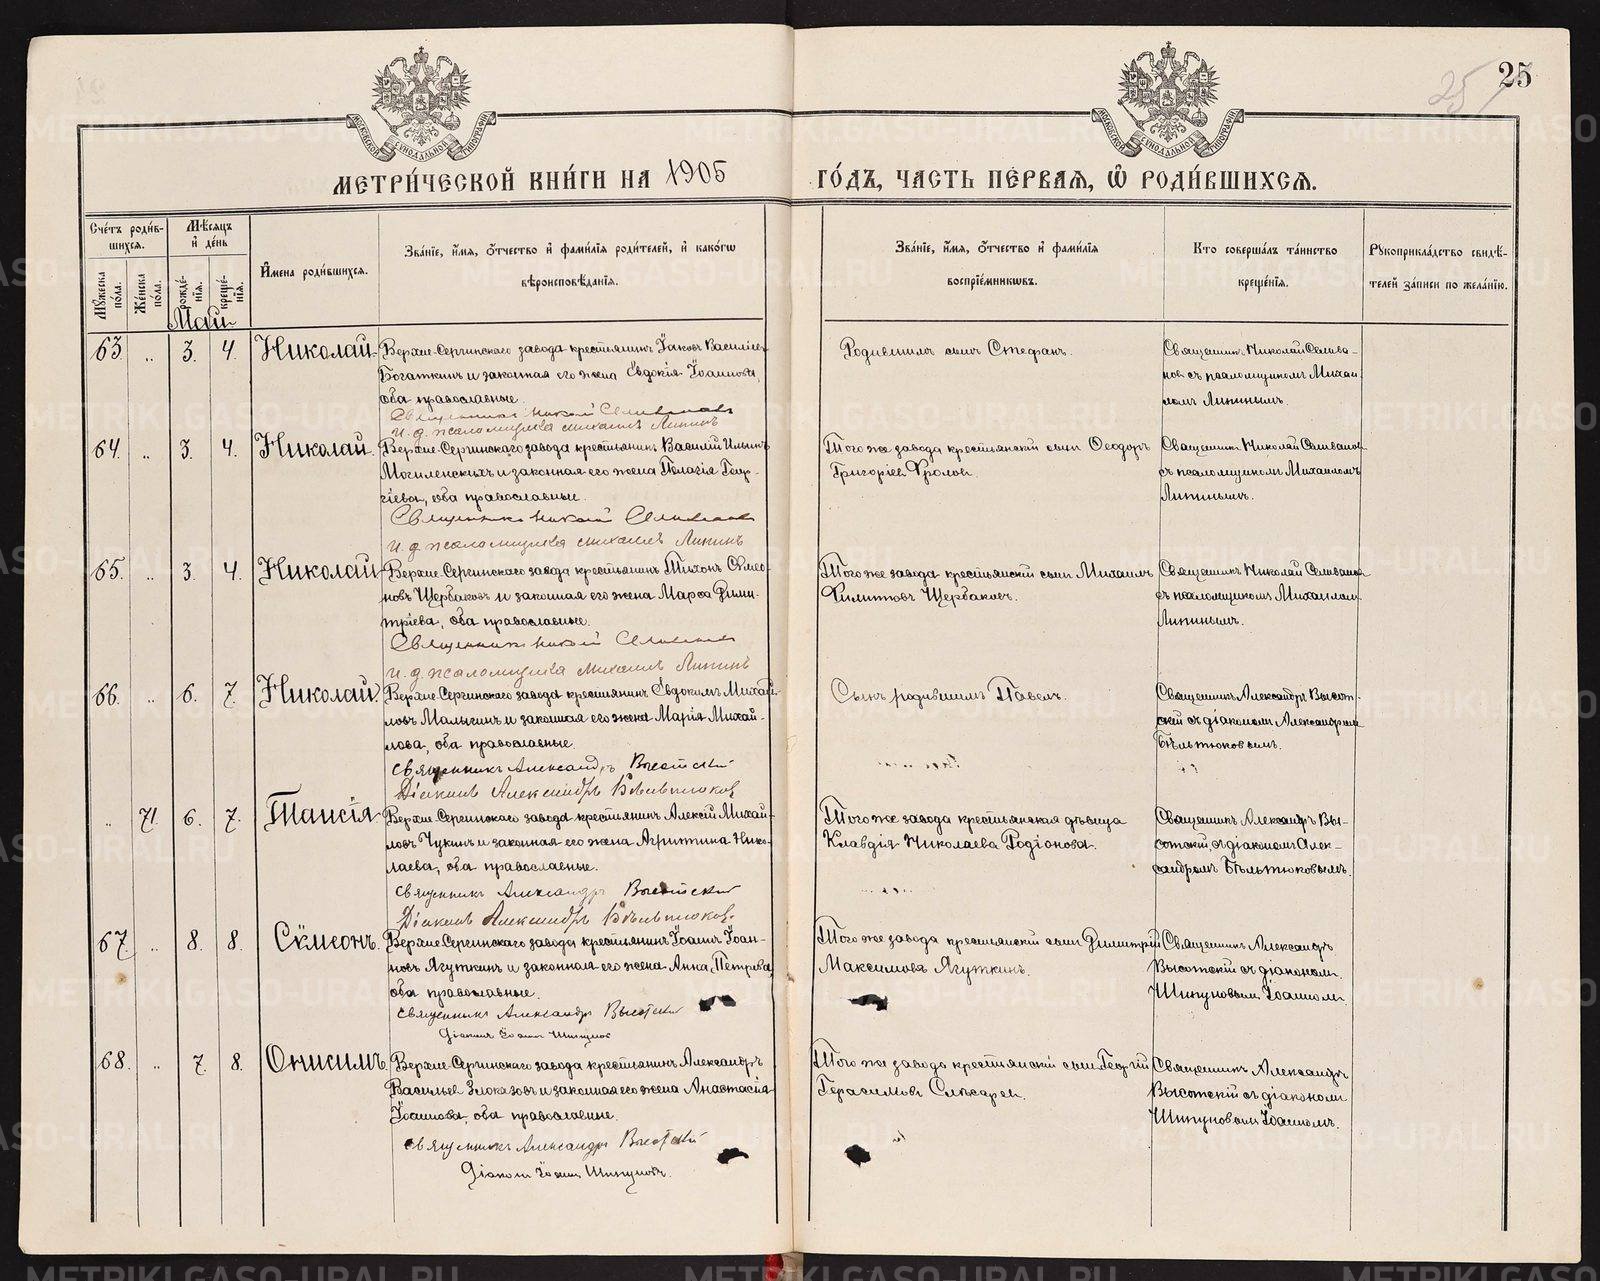 25
МЕТРИ́ЧЕСКОЙ КНИ́ГИ НА 1905 ГО́ДЪ, ЧАСТЬ ПЕ́РВАЯ, Ѿ РОДИ́ВШИХСЯ.
Сче́тъ роди́в-
шихся.
Мѣсяцъ
и де́нь
Имена роди́вшихся.
Зва́ніе, и́мя, о́тчество и фами́лія роди́телей, и како́гѡ
вѣроисповѣ́данія.
Зва́ніе, и́мя, о́тчество и фами́лія
воспріе́мниковъ.
Кто соверша́лъ та́инство
креще́нія.
Рукоприкла́дство свидѣ́-
телей за́писи по жела́нію.
Мужеска по́ла.
Же́нска по́ла.
рожде́-нія.
креще́-нія.
Май
63. „ 3. 4. Николай Верхне-Сергинскаго завода крестьянинъ Іаковъ Василіевъ
Богаткинъ и законная его жена Евдокія Іоаннова,
оба православные.
Священникъ Николай Селивановъ
и. д. псаломщика Михаилъ Липинъ
Родившимъ сынъ Стефанъ.
Священникъ Николай Селива-
новъ съ псаломщикомъ Михаи-
ломъ Липинымъ.
64. „ 3. 4. Николай. Верхне-Сергинскаго завода крестьянинъ Василій Ильинъ
Могиленскихъ и законная его жена Пелагія Геор-
гіева, оба православные.
Священникъ Николай Селивановъ
и. д. псаломщика Михаилъ Липинъ
Того же завода крестьянскій сынъ Ѳеодоръ
Григоріевъ Фроловъ.
Священникъ Николай Селивановъ
съ псаломщикомъ Михаиломъ
Липинымъ.
65. „ 3. 4. Николай Верхне-Сергинскаго завода крестьянинъ Тихонъ Симео-
новъ Щербаковъ и законная его жена Марѳа Дими-
тріева, оба православные.
Священникъ Николай Селивановъ
и. д. псаломщика Михаилъ Липинъ
Того же завода крестьянскій сынъ Михаилъ
Филипповъ Щербаковъ.
Священникъ Николай Селивановъ
съ псаломщикомъ Михаиломъ
Липинымъ.
66. „ 6. 7. Николай Верхне-Сергинскаго завода крестьянинъ Евдокимъ Михай-
ловъ Малыгинъ и законная его жена Марія Михай-
лова, оба православные.
Священникъ Александръ Высотскій
Діаконъ Александръ Бѣльтюковъ
Сынъ родившимъ Павелъ.
Священникъ Александръ Высот-
скій съ діакономъ Александромъ
Бѣльтюковымъ.
„ 71. 6. 7. Таисія Верхне-Сергинскаго завода крестьянинъ Алексій Михай-
ловъ Чукинъ и законная его жена Агриппина Нико-
лаева, оба православные.
Священникъ Александръ Высотскій
Діаконъ Александръ Бѣльтюковъ.
Того же завода крестьянская дѣвица
Клавдія Николаева Родіонова.
Священникъ Александръ Вы-
сотскій, съ діакономъ Алек-
сандромъ Бѣльтюковымъ.
67. „ 8. 8. Сѵмеонъ. Верхне-Сергинскаго завода крестьянинъ Іоаннъ Іоан-
новъ Ягуткинъ и законная его жена Анна Петрова,
оба православные.
Священникъ Александръ Высотскій
Діаконъ Іоаннъ Шипуновъ
Того же завода крестьянскій сынъ Димитрій
Максимовъ Ягуткинъ.
Священникъ Александръ
Высотскій съ діакономъ
Шипуновымъ Іоанномъ.
68. „ 7. 8. Онисимъ. Верхне-Сергинскаго завода крестьянинъ Александръ
Васильевъ Злоказовъ и законная его жена Анастасія
Іоаннова, оба православные.
Священникъ Александръ Высотскій
Діаконъ Іоаннъ Шипуновъ.
Того же завода крестьянскій сынъ Георгій
Герасимовъ Слѣсаревъ.
Священникъ Александръ
Высотскій съ діакономъ
Шипуновымъ Іоанномъ.
METRIKI.GASO-URAL.RU